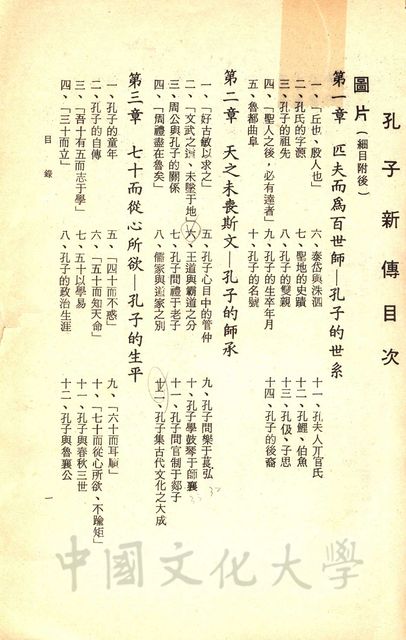 孔子新傳目次
圖片(細目附後)
第一章 匹夫而為百世師─孔子的世系
一、「丘也、殷人也」
二、孔氏的字源
三、孔子的祖先
四、「聖人之後,必有達者」
五、魯都曲阜
六、泰岱與洙泗
七、聖地的史蹟
八、孔子的雙親
九、孔子的生卒年月
十、孔子的名號
十一、孔夫人亓官氏
十二、孔鯉、伯魚
十三、孔伋、子思
十四、孔子的後裔
第二章 天之未喪斯文─孔子的師承
一、「好古敏以求之」
二、「文武之道、未墜于地」
三、周公與孔子的關係
四、「周禮盡在魯矣」
五、孔子心目中的管仲
六、王道與霸道之分
七、孔子問禮于老子
八、儒家與道家之別
九、孔子問樂于萇弘
十、孔子學鼓琴于師襄
十一、孔子問官制于郯子
十二、孔子集古代文化之大成
第三章 七十而從心所欲─孔子的生平
一、孔子的童年
二、孔子的自傳
三、「吾十有五而志于學」
四、「三十而立」
五、「四十而不惑」
六、「五十而知天命」
七、五十以學易
八、孔子的政治生涯
九、「六十而耳順」
十、「七十而從心所欲、不踰矩」
十一、孔子與春秋三世
十二、孔子與魯襄公
目錄
一
中國文化大學